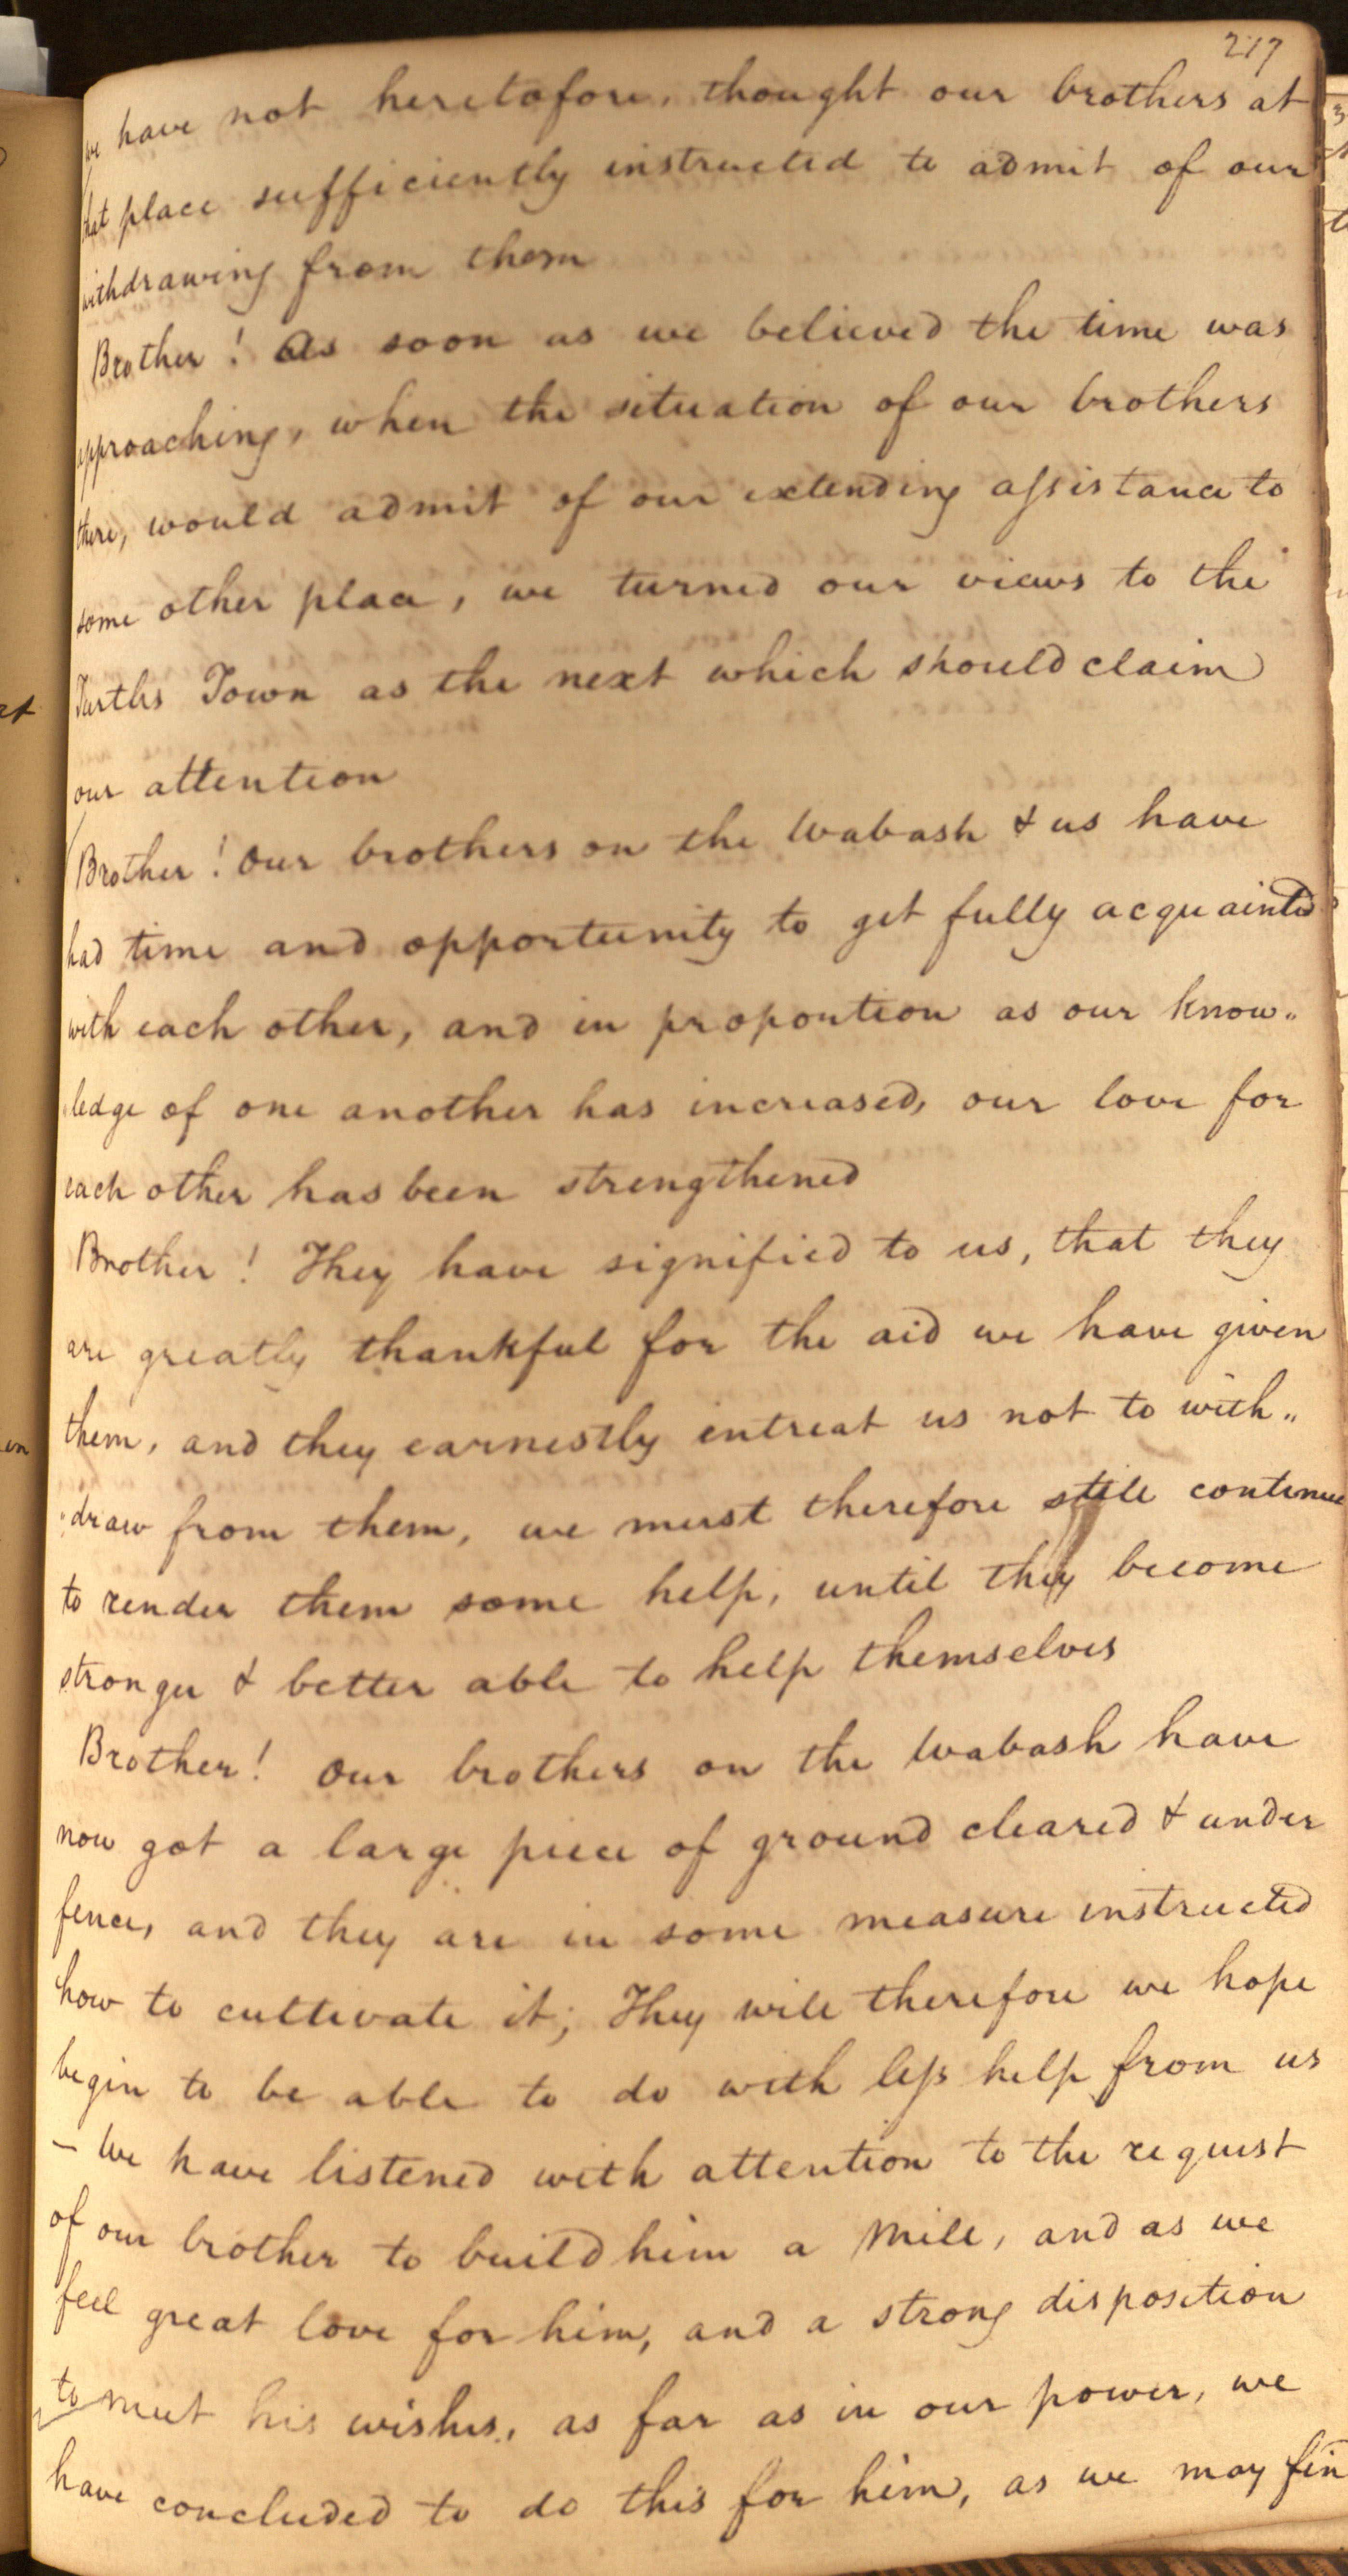 217
we have not heretofore, thought our brothers at
that place sufficiently instructed to admit of our
withdrawing from them
Brother! As soon as we believed the time was
approaching, when the situation of our brothers
there, would admit of our extending assistance to
some other place, we turned our views to the
Turtles Town as the next which should claim
our attention
Brother! Our brothers on the Wabash & us have
had time and opportunity to get fully acquainted
with each other, and in proportion as our know„
„ledge of one another has increased, our love for
each other has been strengthened
Brother! They have signified to us, that they
are greatly thankful for the aid we have given
them, and they earnestly entreat us not to with„
„draw from them, we must therefore still continue
to render them some help, until they become
stronger & better able to help themselves
Brother! Our brothers on the Wabash have
now got a large piece of ground cleared & under
fence, and they are in some measure instructed
how to cultivate it; They will therefore we hope
begin to be able to do with less help from us
– We have listened with attention to the request
of our brother to build him a Mill, and as we
feel great love for him, and a strong disposition
to meet his wishes, as far as in our power, we
have concluded to do this for him, as we may fin